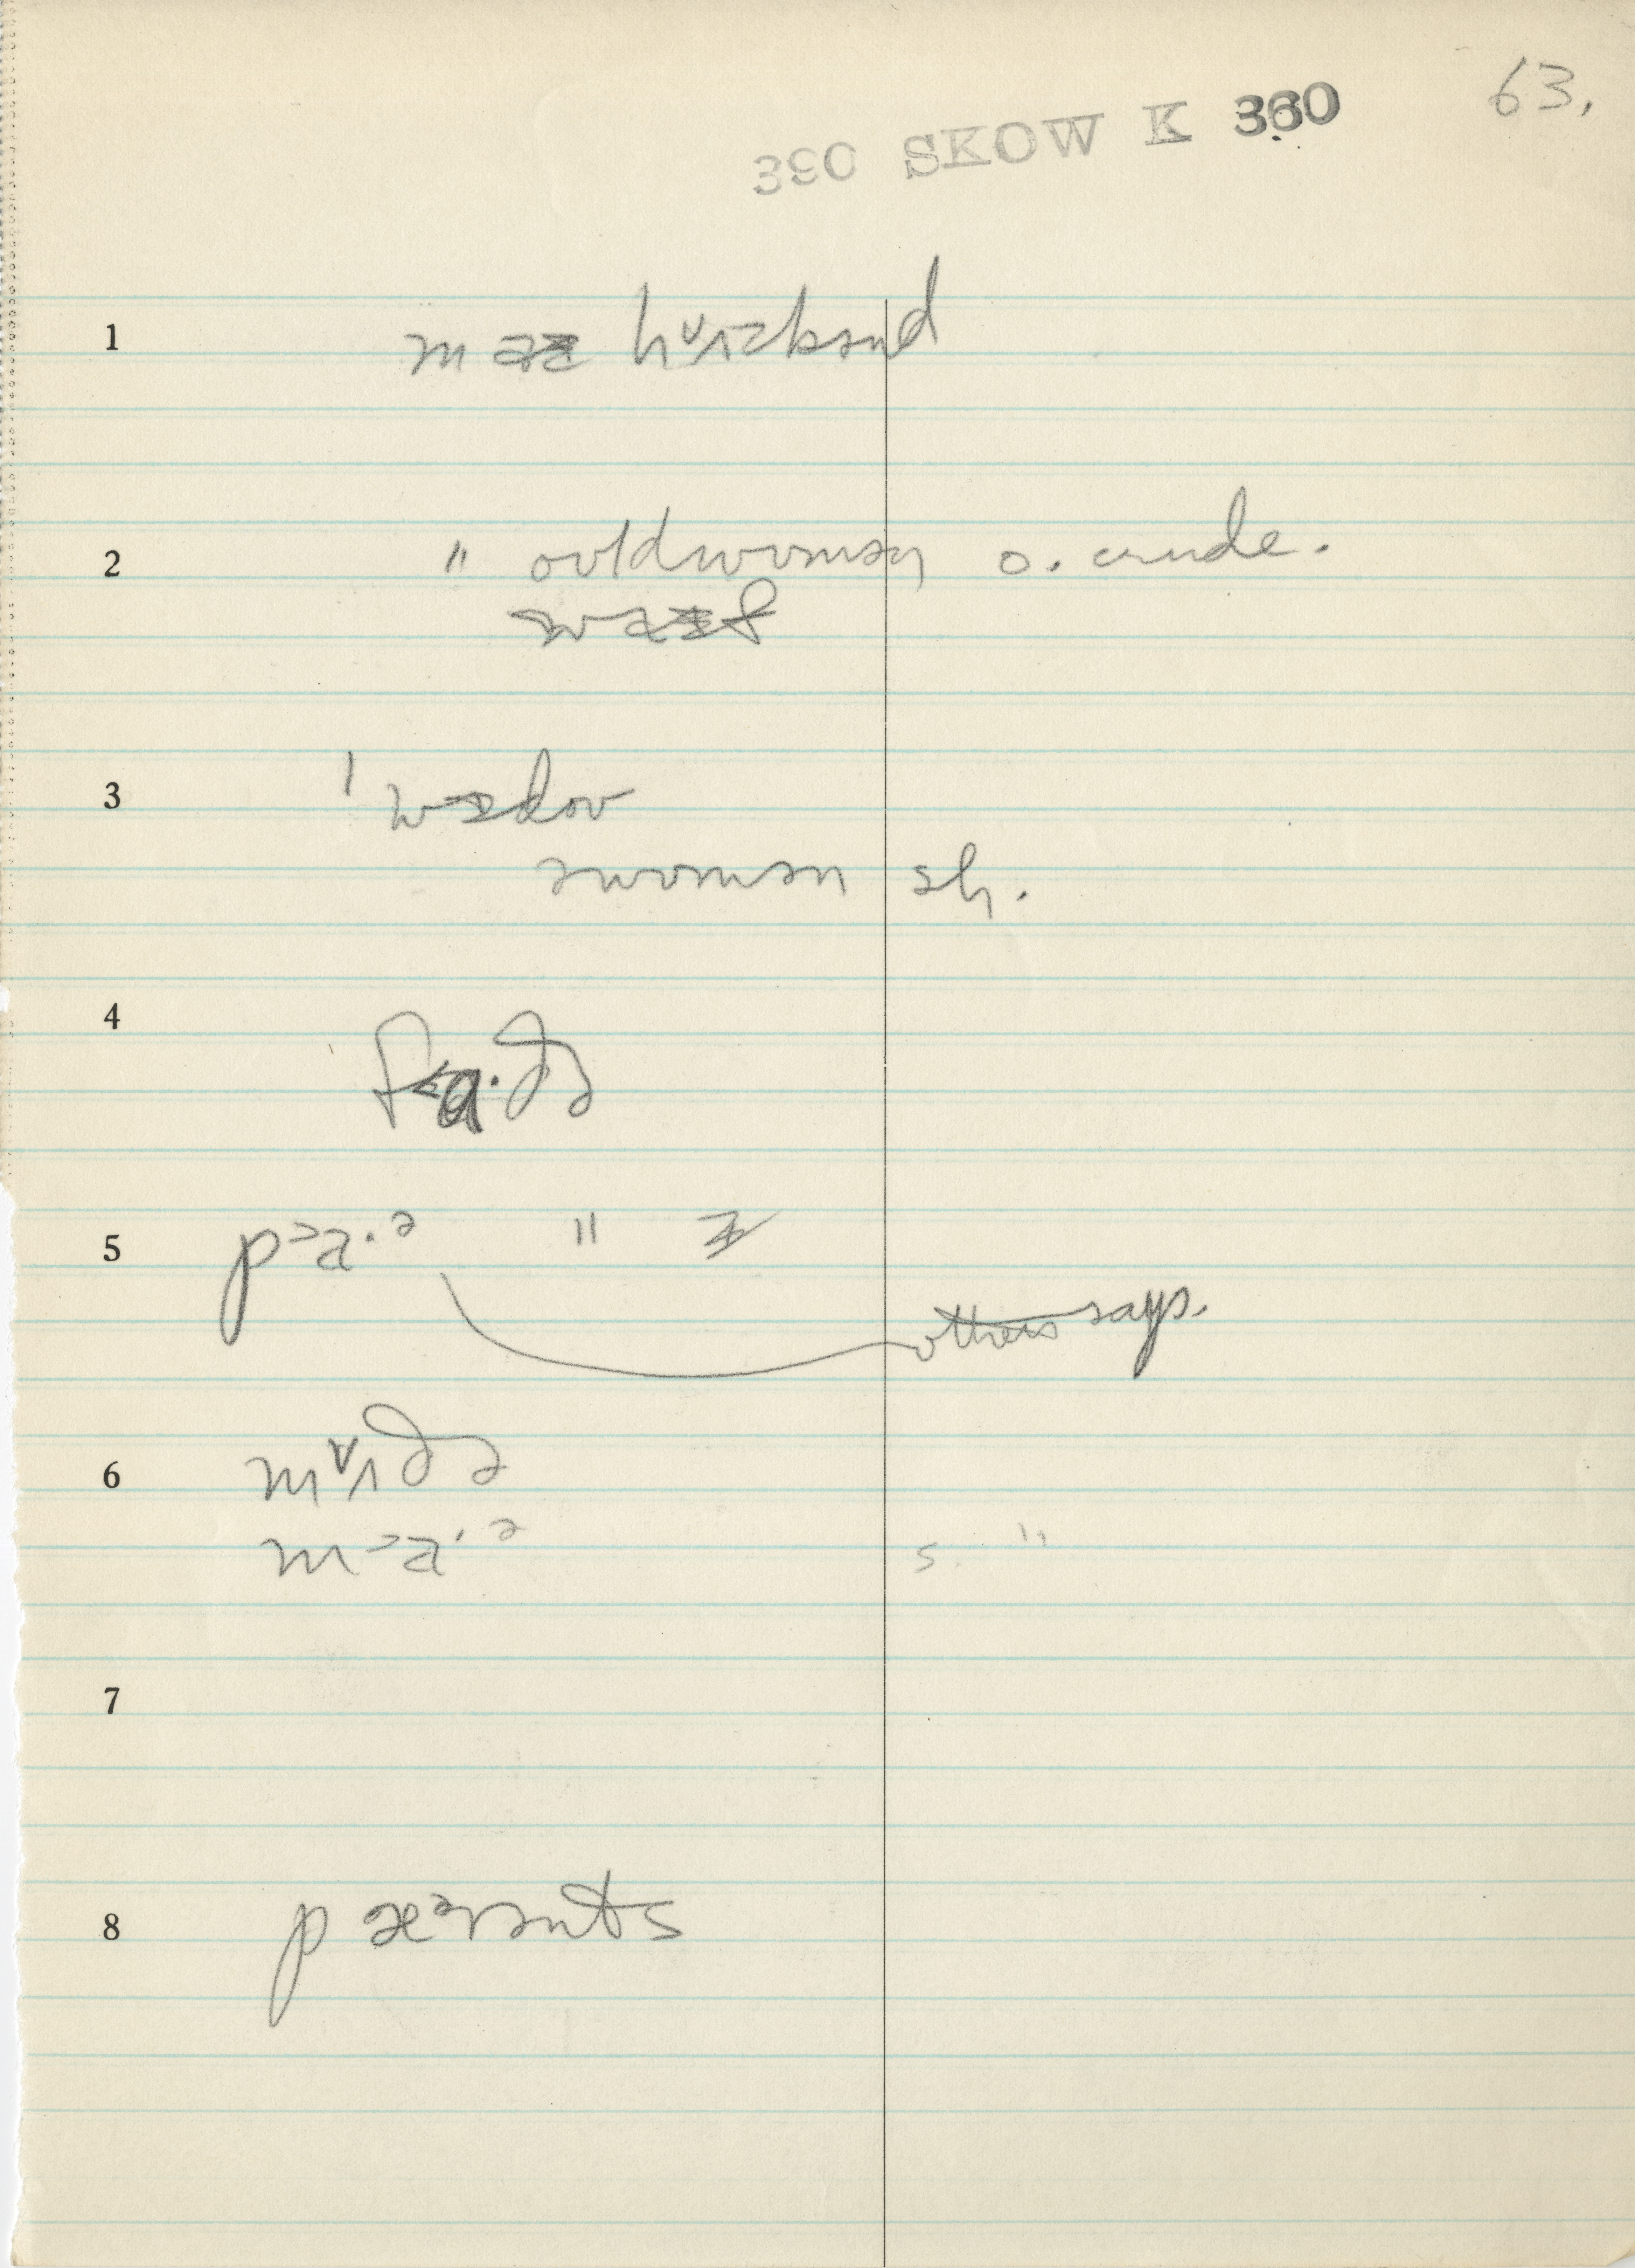 63.
390 SKOW K 360
1 m aɪ hʌzbənd
2 " ouldwumən o. crude.
waɪf
3 ˈwɪdou
əwumən sh.
4 fɑ·ðə
5 pɑ·ə " ɪ
others says.
6 mʌðə
mɑ·ə s. "
7
8 pæərənts